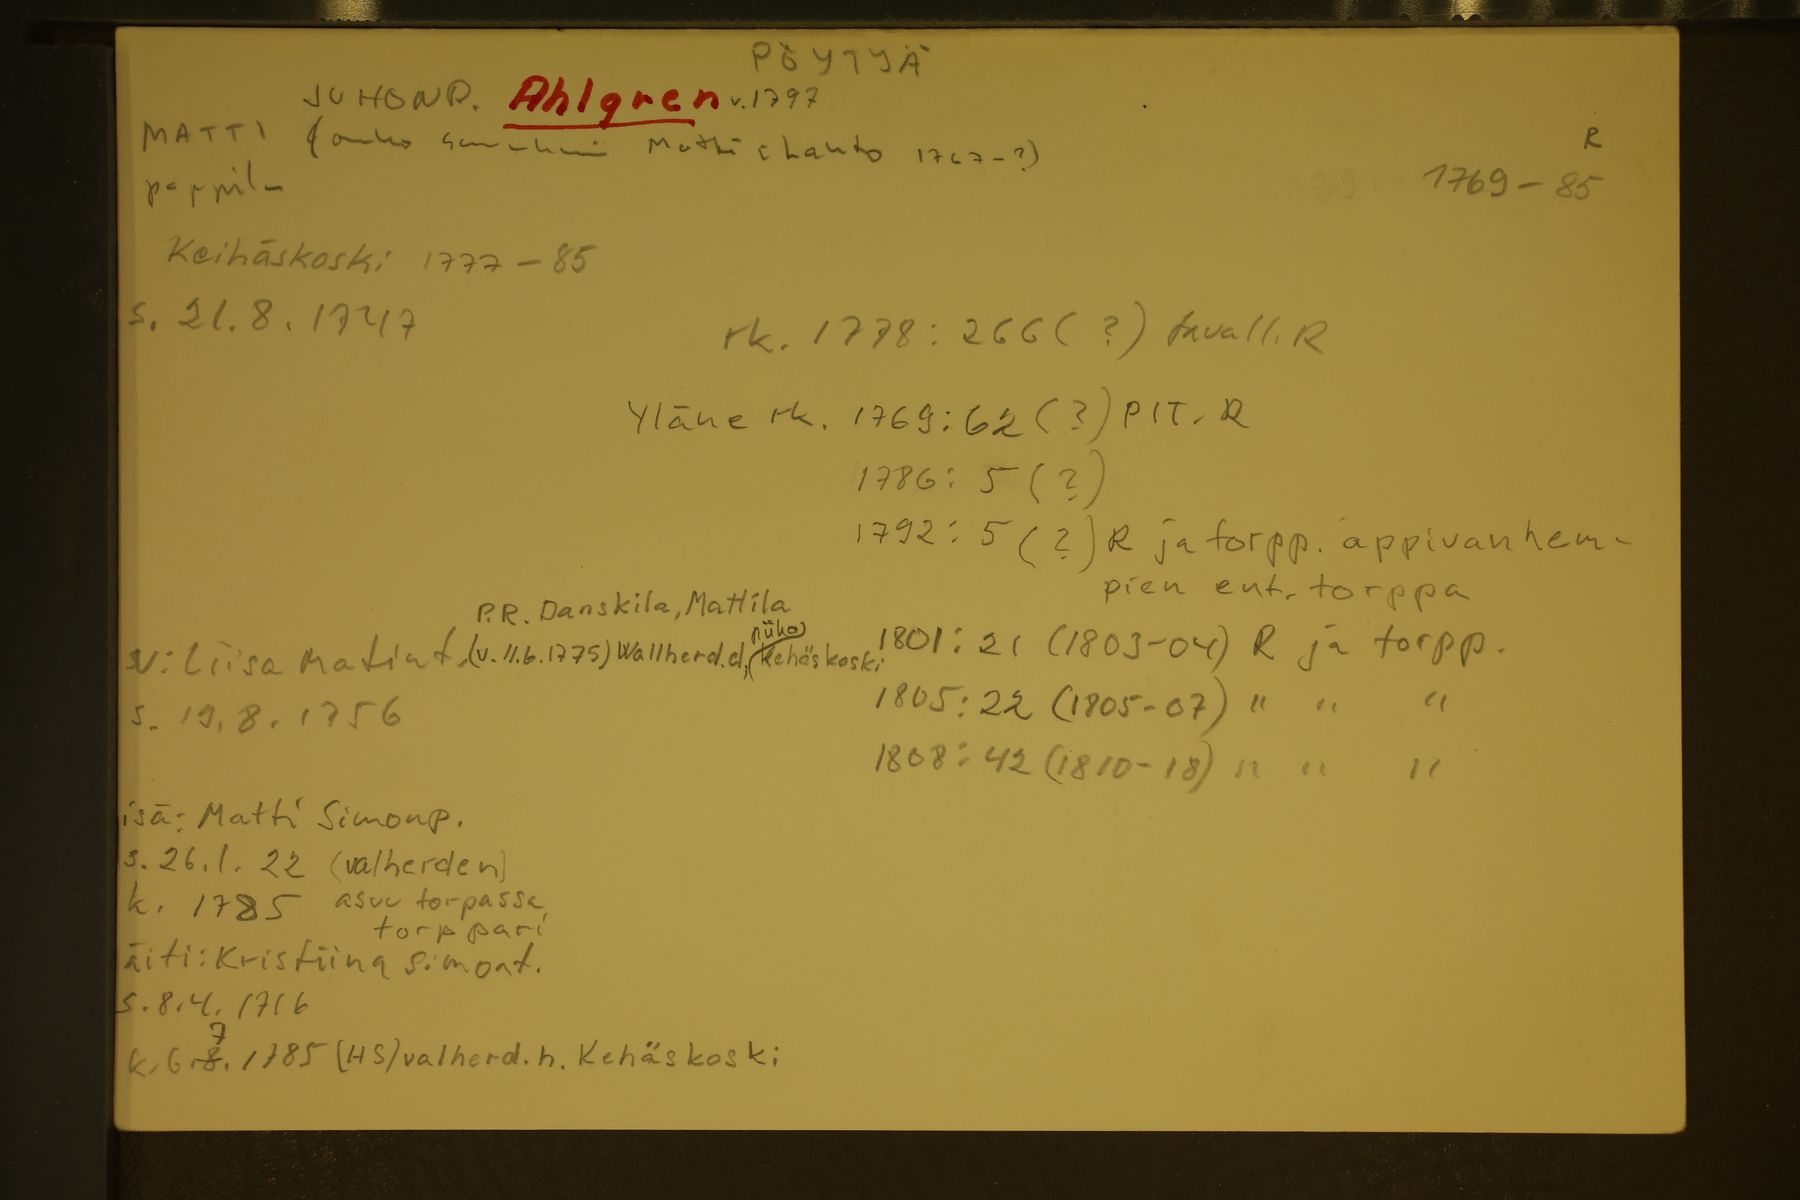 PÖYTYÄ
JUHONP. Ahlgren v. 1797
MATTI (onko Matti 1767-?)
R
pappila
1769-85
Keihäskoski 1777-85
s. 21.8.1747
rk. 1778: 266 (?) tavall. R
Yläne rk. 1769: 62 (?) PIT. R
1786: 5 (?)
1792: 5 (?) R ja torpp. appivanhem-
pien ent. torppa
P.R. Danskila, Mattila
v: Liisa Matint. (v. 11.6.1775) Wallherd.d, piika Kehäskoski
1801: 21 (1803-04) R ja torpp.
s. 19.8.1756
1805: 22 (1805-07) " " "
1808: 42 (1810-18) " " "
isä: Matti Simonp.
s. 26.1.22 (valherden)
k. 1785 asuu torpassa,
torppari
äiti: Kristiina Simont.
s. 8.4.1716
7
k. 6.8.1785 (HS) valherd.h. Kehäskoski